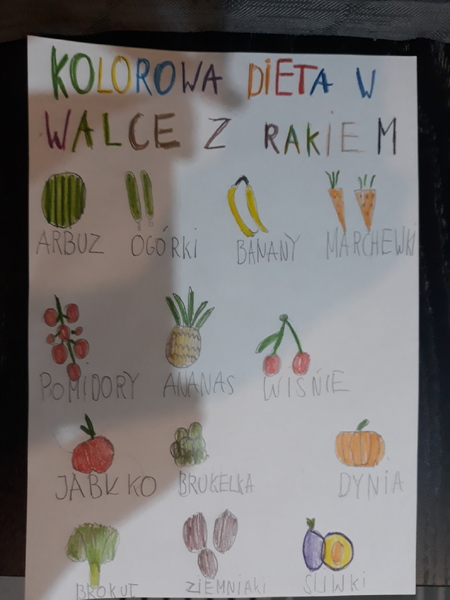 KOLOROWA DIETA W
WALCE Z RAKIEM
ARBUZ OGÓRKI BANANY MARCHEWKI
POMIDORY ANANAS WIŚNIE
JABŁKO BRUKELKA DYNIA
BROKUŁ ZIEMNIAKI ŚLIWKI